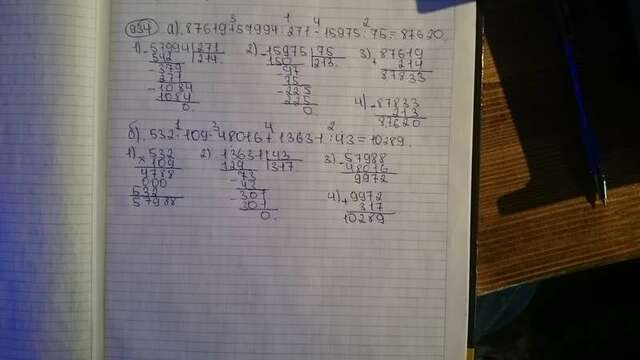 934 а). 87619 + 57994 : 271 - 15975 : 75 = 87620.
3 1 4 2
1) 57994 | 271
- 542 | 214
- 379
271
- 1084
1084
0
2) 15975 | 75
- 150 | 213
- 97
75
- 225
225
0
3) 87619
+ 214
87833
4) - 87833
213
87620
б). 532 · 109 - 48016 + 13631 : 43 = 10289.
1 3 4 2
1) 532
× 109
4788
000
532
57988
2) 13631 | 43
129 | 317
- 73
43
- 301
301
0
3) - 57988
48016
9972
4) + 9972
317
10289